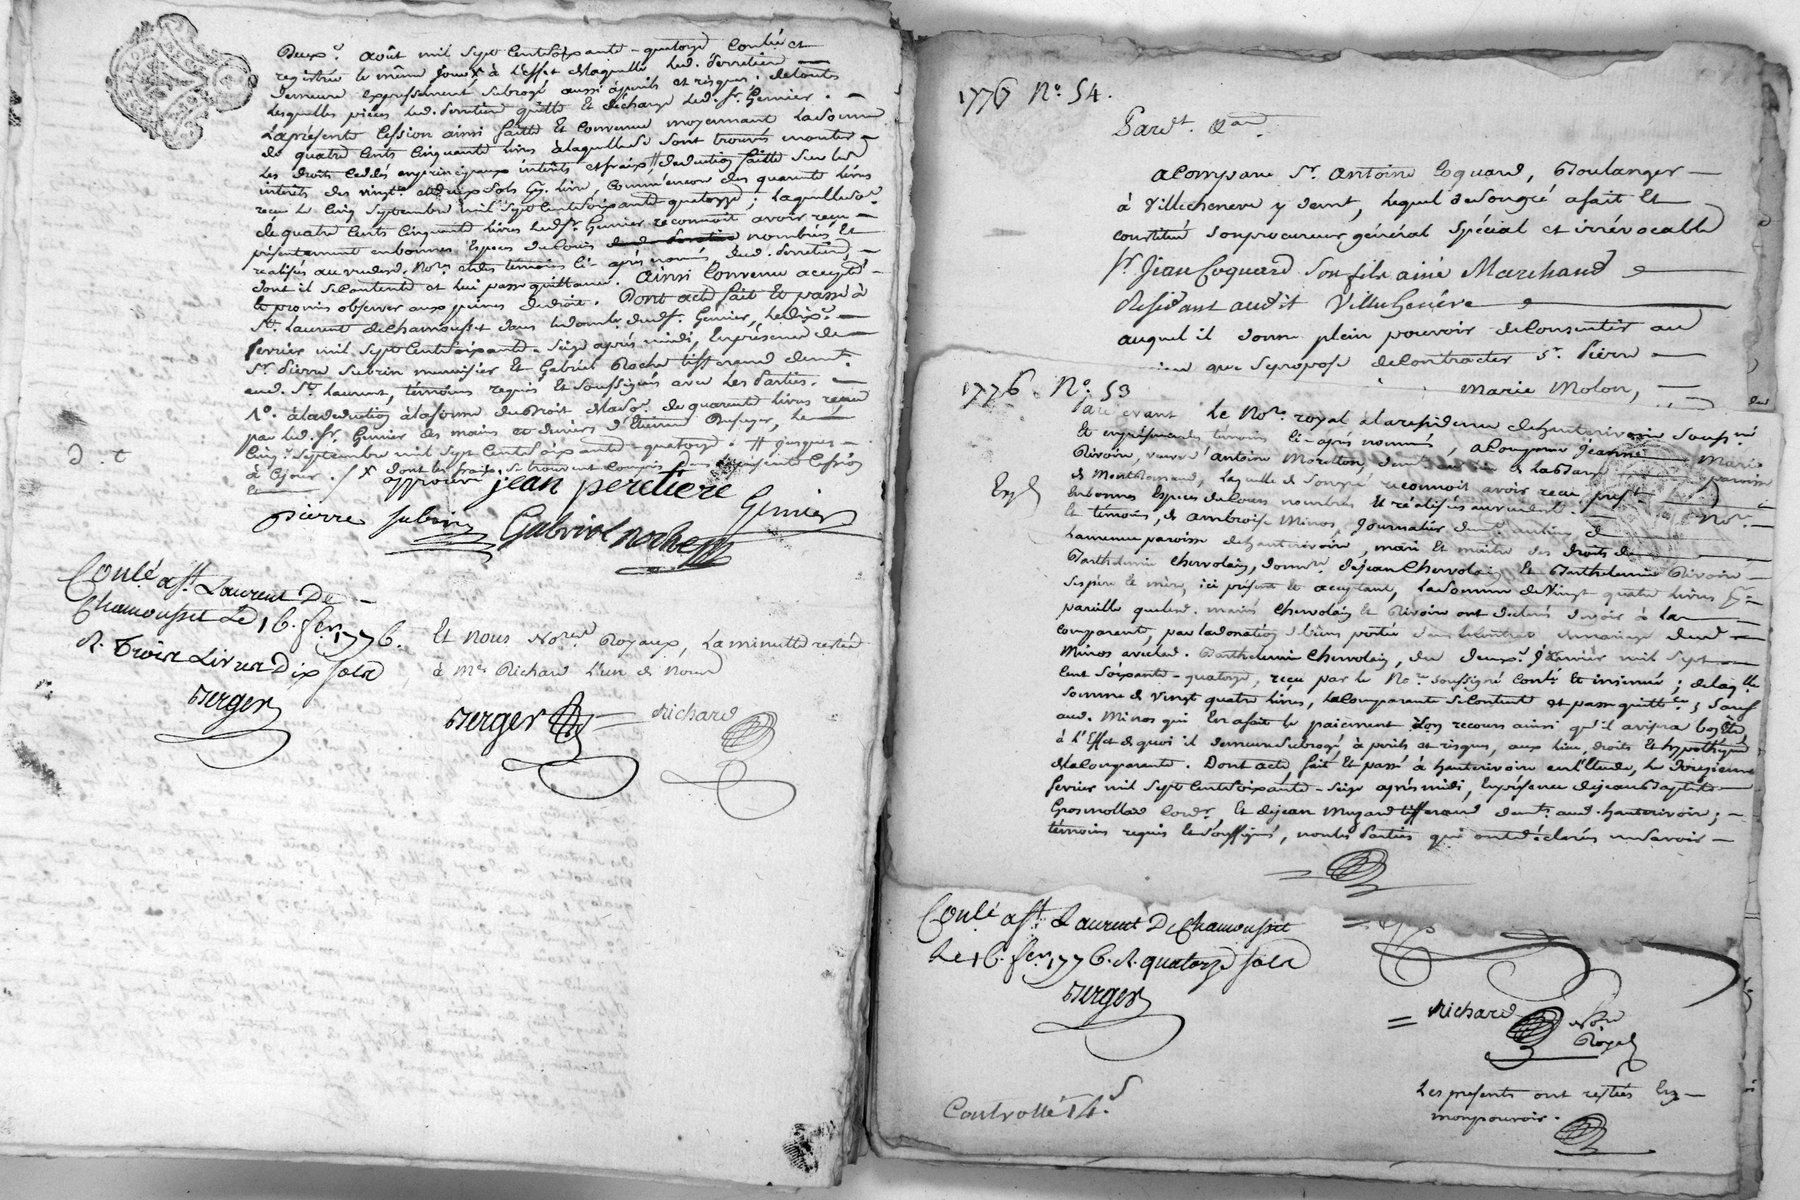 Deux.e août mil sept cent soixante-quatorze Conlé et
registré le même jour à l'effet de laquelle led. Perretière
demeure expressément subrogé aussi à périls et risques. de toutes
lesquelles pièces led. Perretière quitte et décharge led. Sr. Genier.
La présente Cession ainsi faitte et convenue moyennant la somme
de quatre cents cinquante livres à laquelle se sont trouvés monter
les droits cédés en principaux intérêts et frais, // déduction faitte sur les
intérêts des vingt deux sols
reçu le cinq septembre mil sept cent soixante quatorze; laquelle so.e
de quatre cents cinquante livres led. Sr. Genier reconnoit avoir reçu
présentement en bonnes Espèces de Louis nombrées et
réalisés au vu desd. No.res et des témoins ci-après nommés dud. Perretière,
dont il se contente et lui passe quittance. Ainsi Convenu accepté
et promis observer aux peines de droit. Dont acte fait et passé à
St. Laurent de Chamousset dans le dom.le dud. Sr. Genier, le dix.e
fevrier mil sept cent soixante-seize après midi, En présence de
Sr. Pierre Subrin menuisier et Gabriel Roche tisserand demt.
aud. St. Laurent, témoins requis et soussignés avec les Parties.
1°. à la déduction à la forme du droit de la so.e de quarante livres reçue
par led. Sr. Genier des mains et deniers d'Etienne le
cinq.e septembre mil sept cent soixante-quatorze. // jusques
à ce jour. / x dont les frais se trouvent compris présente Cession
approuvé jean peretiere
pierre subrin Gabriel roche Genier
D. t
Conlé a St. Laurent De
Chamousset Le 16. fer. 1776.
R. Trois Livres Dix sols
Berger
Et Nous No.res Royaux, La minutte restée
à Me. Richard L'un de Nous
Berger Richard
1776 No. 54.
Pardt.
a Comparu Sr. Antoine Coquard, Boulanger
à Villecheneve y demt, lequel de son gré a fait Et
constitué son procureur général spécial et irrévocable
Sr. Jean Coquard son fils ainé Marchand
Résidant audit Villecheneve
auquel il donne plein pouvoir de Consentir au
que se propose de Contracter Sr. Pierre
Marie Molon,
1776 No. 53
Par devant le No.re royal à la résidence de hauterivoire soussigné
Et en présence des témoins ci-après nommés, a Comparu Jeanne Marie
Rivoire, veuve d'Antoine demt. paroisse
de Montromand, laquelle de son gré reconnoit avoir reçu prest.
En bonnes Espèces de Cours nombrées Et réalisées au vu dud. No.re
Et témoins, de Ambroise Minos, Journalier demt.
paroisse de hauterivoire, mari Et maître des droits de
Barthelemie Chervolain, donat.re de jean Chervolain Et Barthelemie Rivoire
ses père et mère, ici présent et acceptant, la somme de Vingt quatre livres
pareille que lesd. mariés Chervolain Et Rivoire ont déclaré devoir à la
comparante, par la donation de biens portée dans le Contrat de mariage dud.
Minos avec lad. Barthelemie Chervolain, du deux.e Janvier mil sept
cent soixante-quatorze, reçu par le No.re soussigné Conlé Et insinué; de laq.lle
somme de vingt quatre livres, la Comparante se Contente et passe quittce; sauf
aud. Minos qui En a fait le paiement son recours ainsi qu'il avisera
à l'Effet de quoi il demeure subrogé à périls et risques, aux lieu, droits Et hypothèques
de la Comparante. Dont acte fait Et passé à hauterivoire en l'Etude, le Douzieme
fevrier mil sept cent soixante-seize après midi, En présence de jean Baptiste
Grosmollard Cord.r, Et de jean Muzard tisserand demts. aud. hauterivoire;
témoins requis et soussignés, non les Parties qui ont déclarés ne savoir
Conlé a St. Laurent De Chamousset
Le 16. fer. 1776. R. quatorze sols
Berger
Richard No.re
Royal
Les présents ont restées En
mon pouvoir.
Controllé 14.s